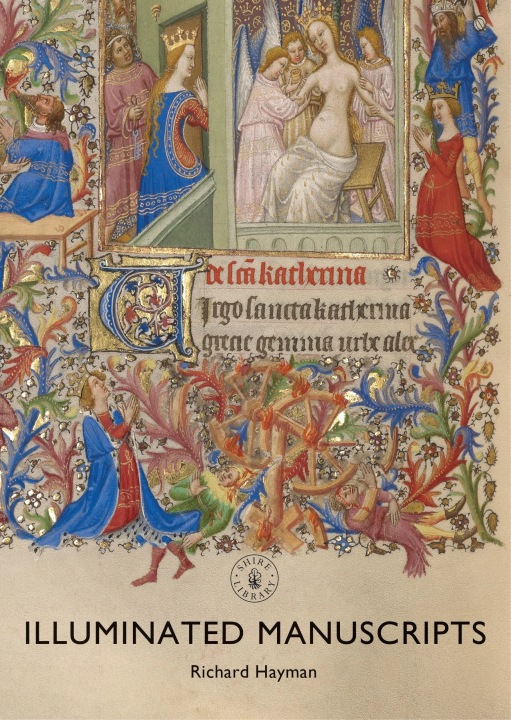 de scā katherina
Virgo sancta katherina
grecie gemma urbe alex
SHIRE LIBRARY
ILLUMINATED MANUSCRIPTS
Richard Hayman